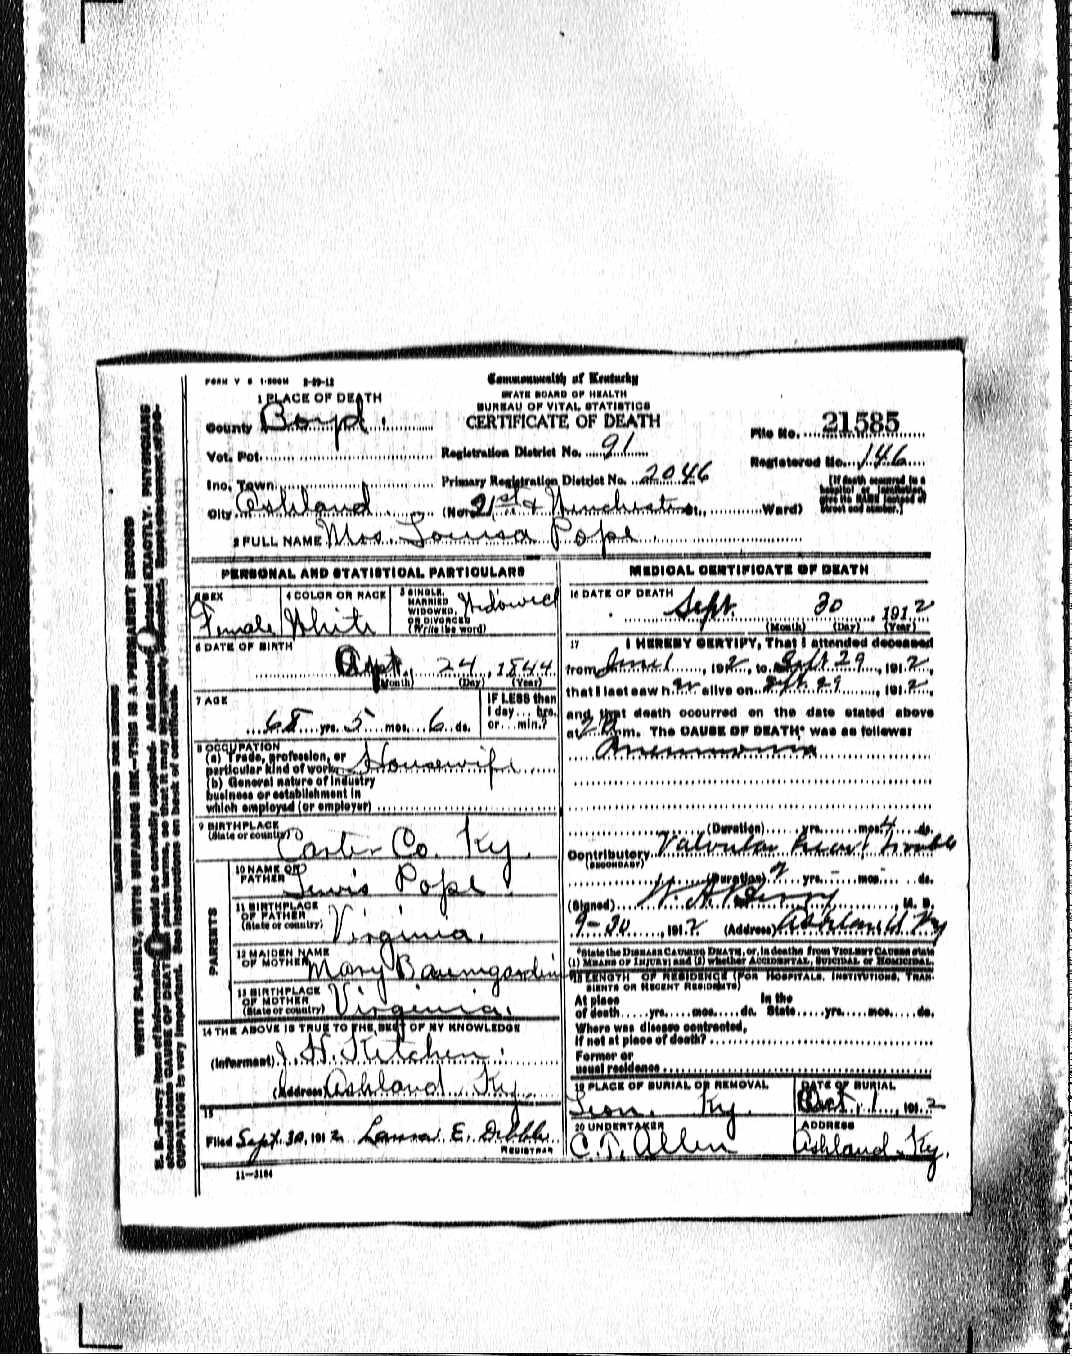 FORM V S 1-500M 2-29-12
Commonwealth of Kentucky
STATE BOARD OF HEALTH
BUREAU OF VITAL STATISTICS
CERTIFICATE OF DEATH
1 PLACE OF DEATH
County Boyd.
Vot. Pct.
Inc. Town
City Ashland
Registration District No. 91
Primary Registration District No. 2046
(No. 21st & Winchester St., Ward)
File No. 21585
Registered No. 146
[If death occurred in a hospital or institution give its NAME instead of street and number.]
2 FULL NAME Mrs. Louisa Pope
PERSONAL AND STATISTICAL PARTICULARS
3 SEX Female
4 COLOR OR RACE White
5 SINGLE, MARRIED WIDOWED, OR DIVORCED (Write the word) Widowed
6 DATE OF BIRTH
24, 1844
(Month) (Day) (Year)
7 AGE
68 yrs. 5 mos. 6 ds.
IF LESS than 1 day... hrs. or... min.?
8 OCCUPATION
(a) Trade, profession, or particular kind of work Housewife
(b) General nature of industry business or establishment in which employed (or employer)
9 BIRTHPLACE
(State or country) Carter Co. Ky.
PARENTS
10 NAME OF FATHER Lewis Pope
11 BIRTHPLACE OF FATHER (State or country) Virginia.
12 MAIDEN NAME OF MOTHER Mary Baumgardin
13 BIRTHPLACE OF MOTHER (State or country) Virginia.
14 THE ABOVE IS TRUE TO THE BEST OF MY KNOWLEDGE
(Informant) J. H. Kitchen.
(Address) Ashland Ky.
15
Filed Sept. 30, 1912 E. Dibble
REGISTRAR
11-3184
MEDICAL CERTIFICATE OF DEATH
16 DATE OF DEATH Sept. 30, 1912
(Month) (Day) (Year)
17 I HEREBY CERTIFY, That I attended deceased
from June 1, 1912, to Sept 29, 1912,
that I last saw her alive on Sept. 29, 1912,
and that death occurred on the date stated above
at m. The CAUSE OF DEATH* was as follows:
Pneumonia
(Duration) yrs. mos. 4 ds.
Contributory Valvular heart trouble
(SECONDARY)
(Duration) 2 yrs. - mos. - ds.
(Signed) W. A. Berry, M. D.
9-30, 1912 (Address) Ashland Ky
*State the DISEASE CAUSING DEATH, or, in deaths from VIOLENT CAUSES state (1) MEANS OF INJURY; and (2) whether ACCIDENTAL, SUICIDAL or HOMICIDAL.
18 LENGTH OF RESIDENCE (FOR HOSPITALS, INSTITUTIONS, TRANSIENTS OR RECENT RESIDENTS)
At place of death yrs. mos. ds. In the State yrs. mos. ds.
Where was disease contracted,
if not at place of death?
Former or
usual residence
19 PLACE OF BURIAL OR REMOVAL
Leon. Ky.
DATE OF BURIAL
Oct. 1, 1912
20 UNDERTAKER
C. T. Allen
ADDRESS
Ashland. Ky.
WRITE PLAINLY, WITH UNFADING INK—THIS IS A PERMANENT RECORD